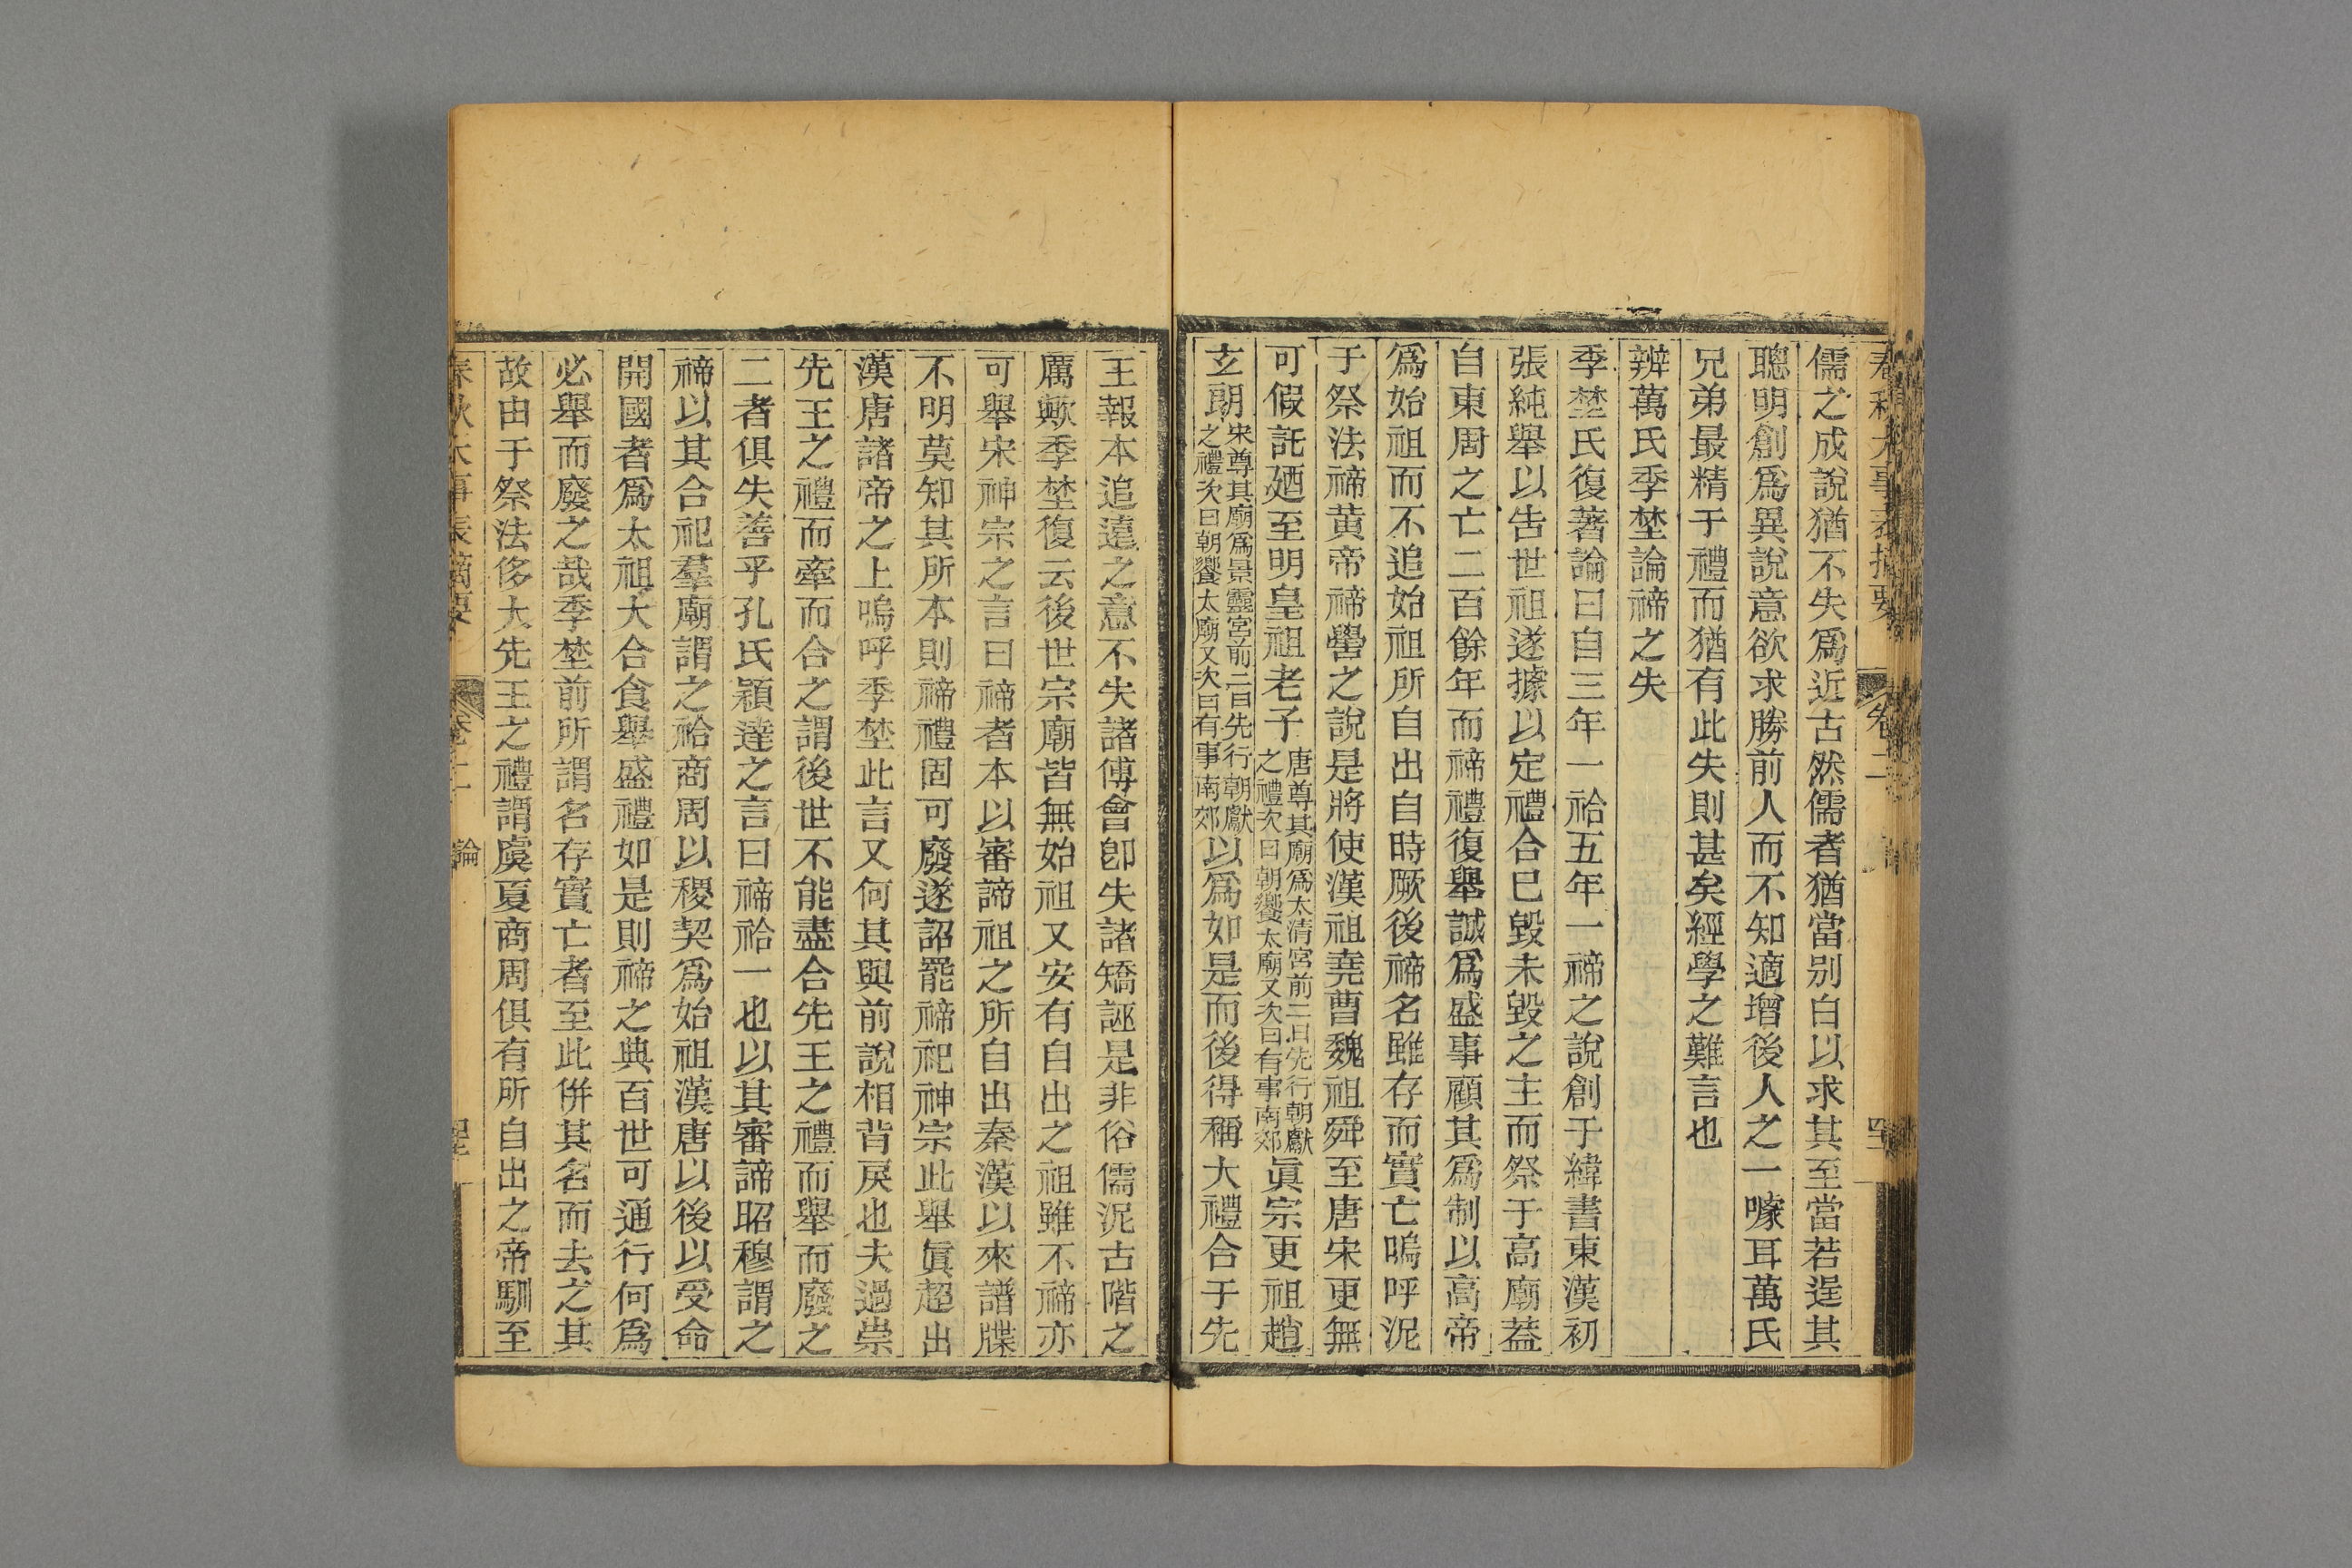 春秋大事表摘要 卷二 論
儒之成說猶不失爲近古然儒者猶當別白以求其至當若逞其
聰明創爲異說意欲求勝前人而不知適增後人之一噱耳萬氏
兄弟最精于禮而猶有此失則甚矣經學之難言也
辨萬氏季埜論禘之失
季埜氏復著論曰自三年一祫五年一禘之說創于緯書東漢初
張純舉以告世祖遂據以定禮合已毀未毀之主而祭于高廟葢
自東周之亡二百餘年而禘禮復舉誠爲盛事顧其爲制以高帝
爲始祖而不追始祖所自出自時厥後禘名雖存而實亡嗚呼泥
于祭法禘黃帝禘嚳之說是將使漢祖堯曹魏祖舜至唐宋更無
可假託廼至明皇祖老子唐尊其廟爲太清宮前二日先行朝獻之禮次日朝饗太廟又次日有事南郊眞宗更祖趙
玄朗宋尊其廟爲景靈宮前二日先行朝獻之禮次日朝饗太廟又次日有事南郊以爲如是而後得稱大禮合于先
王報本追遠之意不失諸傅會卽失諸矯誣是非俗儒泥古階之
厲歟季埜復云後世宗廟皆無始祖又安有自出之祖雖不禘亦
可舉宋神宗之言曰禘者本以審諦祖之所自出秦漢以來譜牒
不明莫知其所本則禘禮固可廢遂詔罷禘祀神宗此舉眞超出
漢唐諸帝之上嗚呼季埜此言又何其與前說相背戾也夫過崇
先王之禮而牽而合之謂後世不能盡合先王之禮而舉而廢之
二者俱失善乎孔氏穎達之言曰禘祫一也以其審諦昭穆謂之
禘以其合祀羣廟謂之祫商周以稷契爲始祖漢唐以後以受命
開國者爲太祖大合食舉盛禮如是則禘之典百世可通行何爲
必舉而廢之哉季埜前所謂名存實亡者至此併其名而去之其
故由于祭法侈大先王之禮謂虞夏商周俱有所自出之帝馴至
春秋大事表摘要 卷二 論